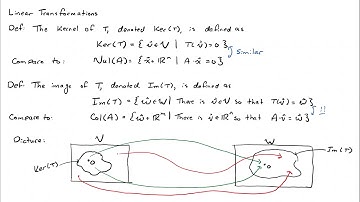 Linear Transformations
Def: The Kernel of T, denoted Ker(T), is defined as
Ker(T) = { v⃗ ∈ V | T(v⃗) = 0⃗ }
Similar
Compare to: Nul(A) = { x⃗ ∈ ℝⁿ | A·x⃗ = 0⃗ }
Def: The image of T, denoted Im(T), is defined as
Im(T) = { w⃗ ∈ W | There is v⃗ ∈ V so that T(v⃗) = w⃗ }
Compare to: Col(A) = { w⃗ ∈ ℝᵐ | There is v⃗ ∈ ℝⁿ so that A·v⃗ = w⃗ }
Picture: V W
Ker(T) Im(T)